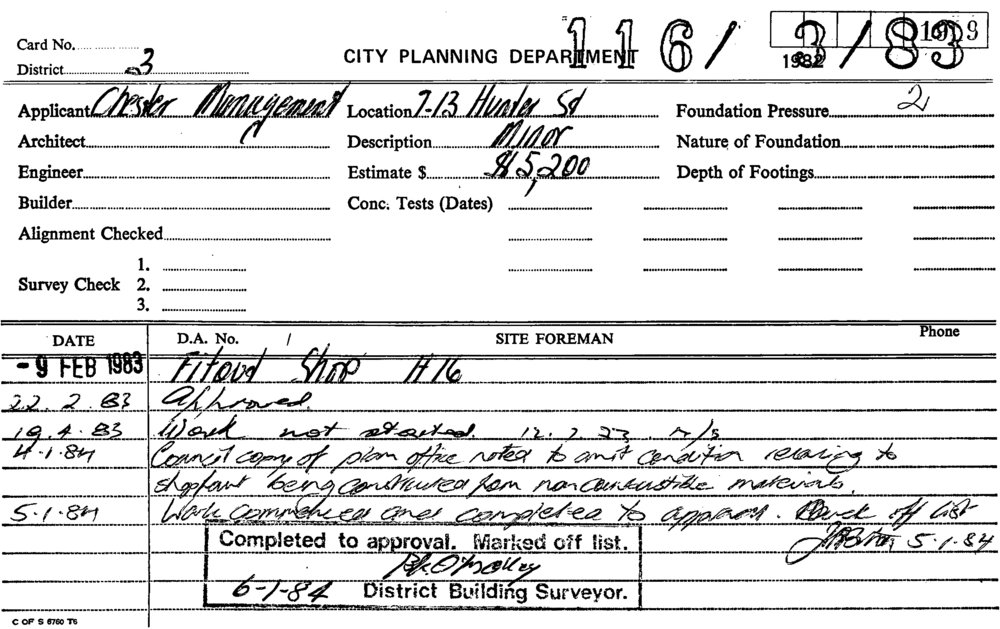 Card No.
116/3/83
1982
District 3
CITY PLANNING DEPARTMENT
Applicant Chester Management Location 7-13 Hunter St Foundation Pressure 2
Architect Description Minor Nature of Foundation
Engineer Estimate $ $15,200 Depth of Footings
Builder Conc. Tests (Dates)
Alignment Checked
1.
Survey Check 2.
3.
DATE D.A. No. / SITE FOREMAN Phone
- 9 FEB 1983 Fitout Shop #16
22.2.83 Approved.
19.4.83 Work not started. N/S
4.1.84 Council copy of plan office noted to omit condition relating to
shopfront being constructed from noncombustible materials.
5.1.84 Work commenced and completed to approval. off list
5.1.84
Completed to approval. Marked off list.
6-1-84 District Building Surveyor.
C OF S 6760 T6